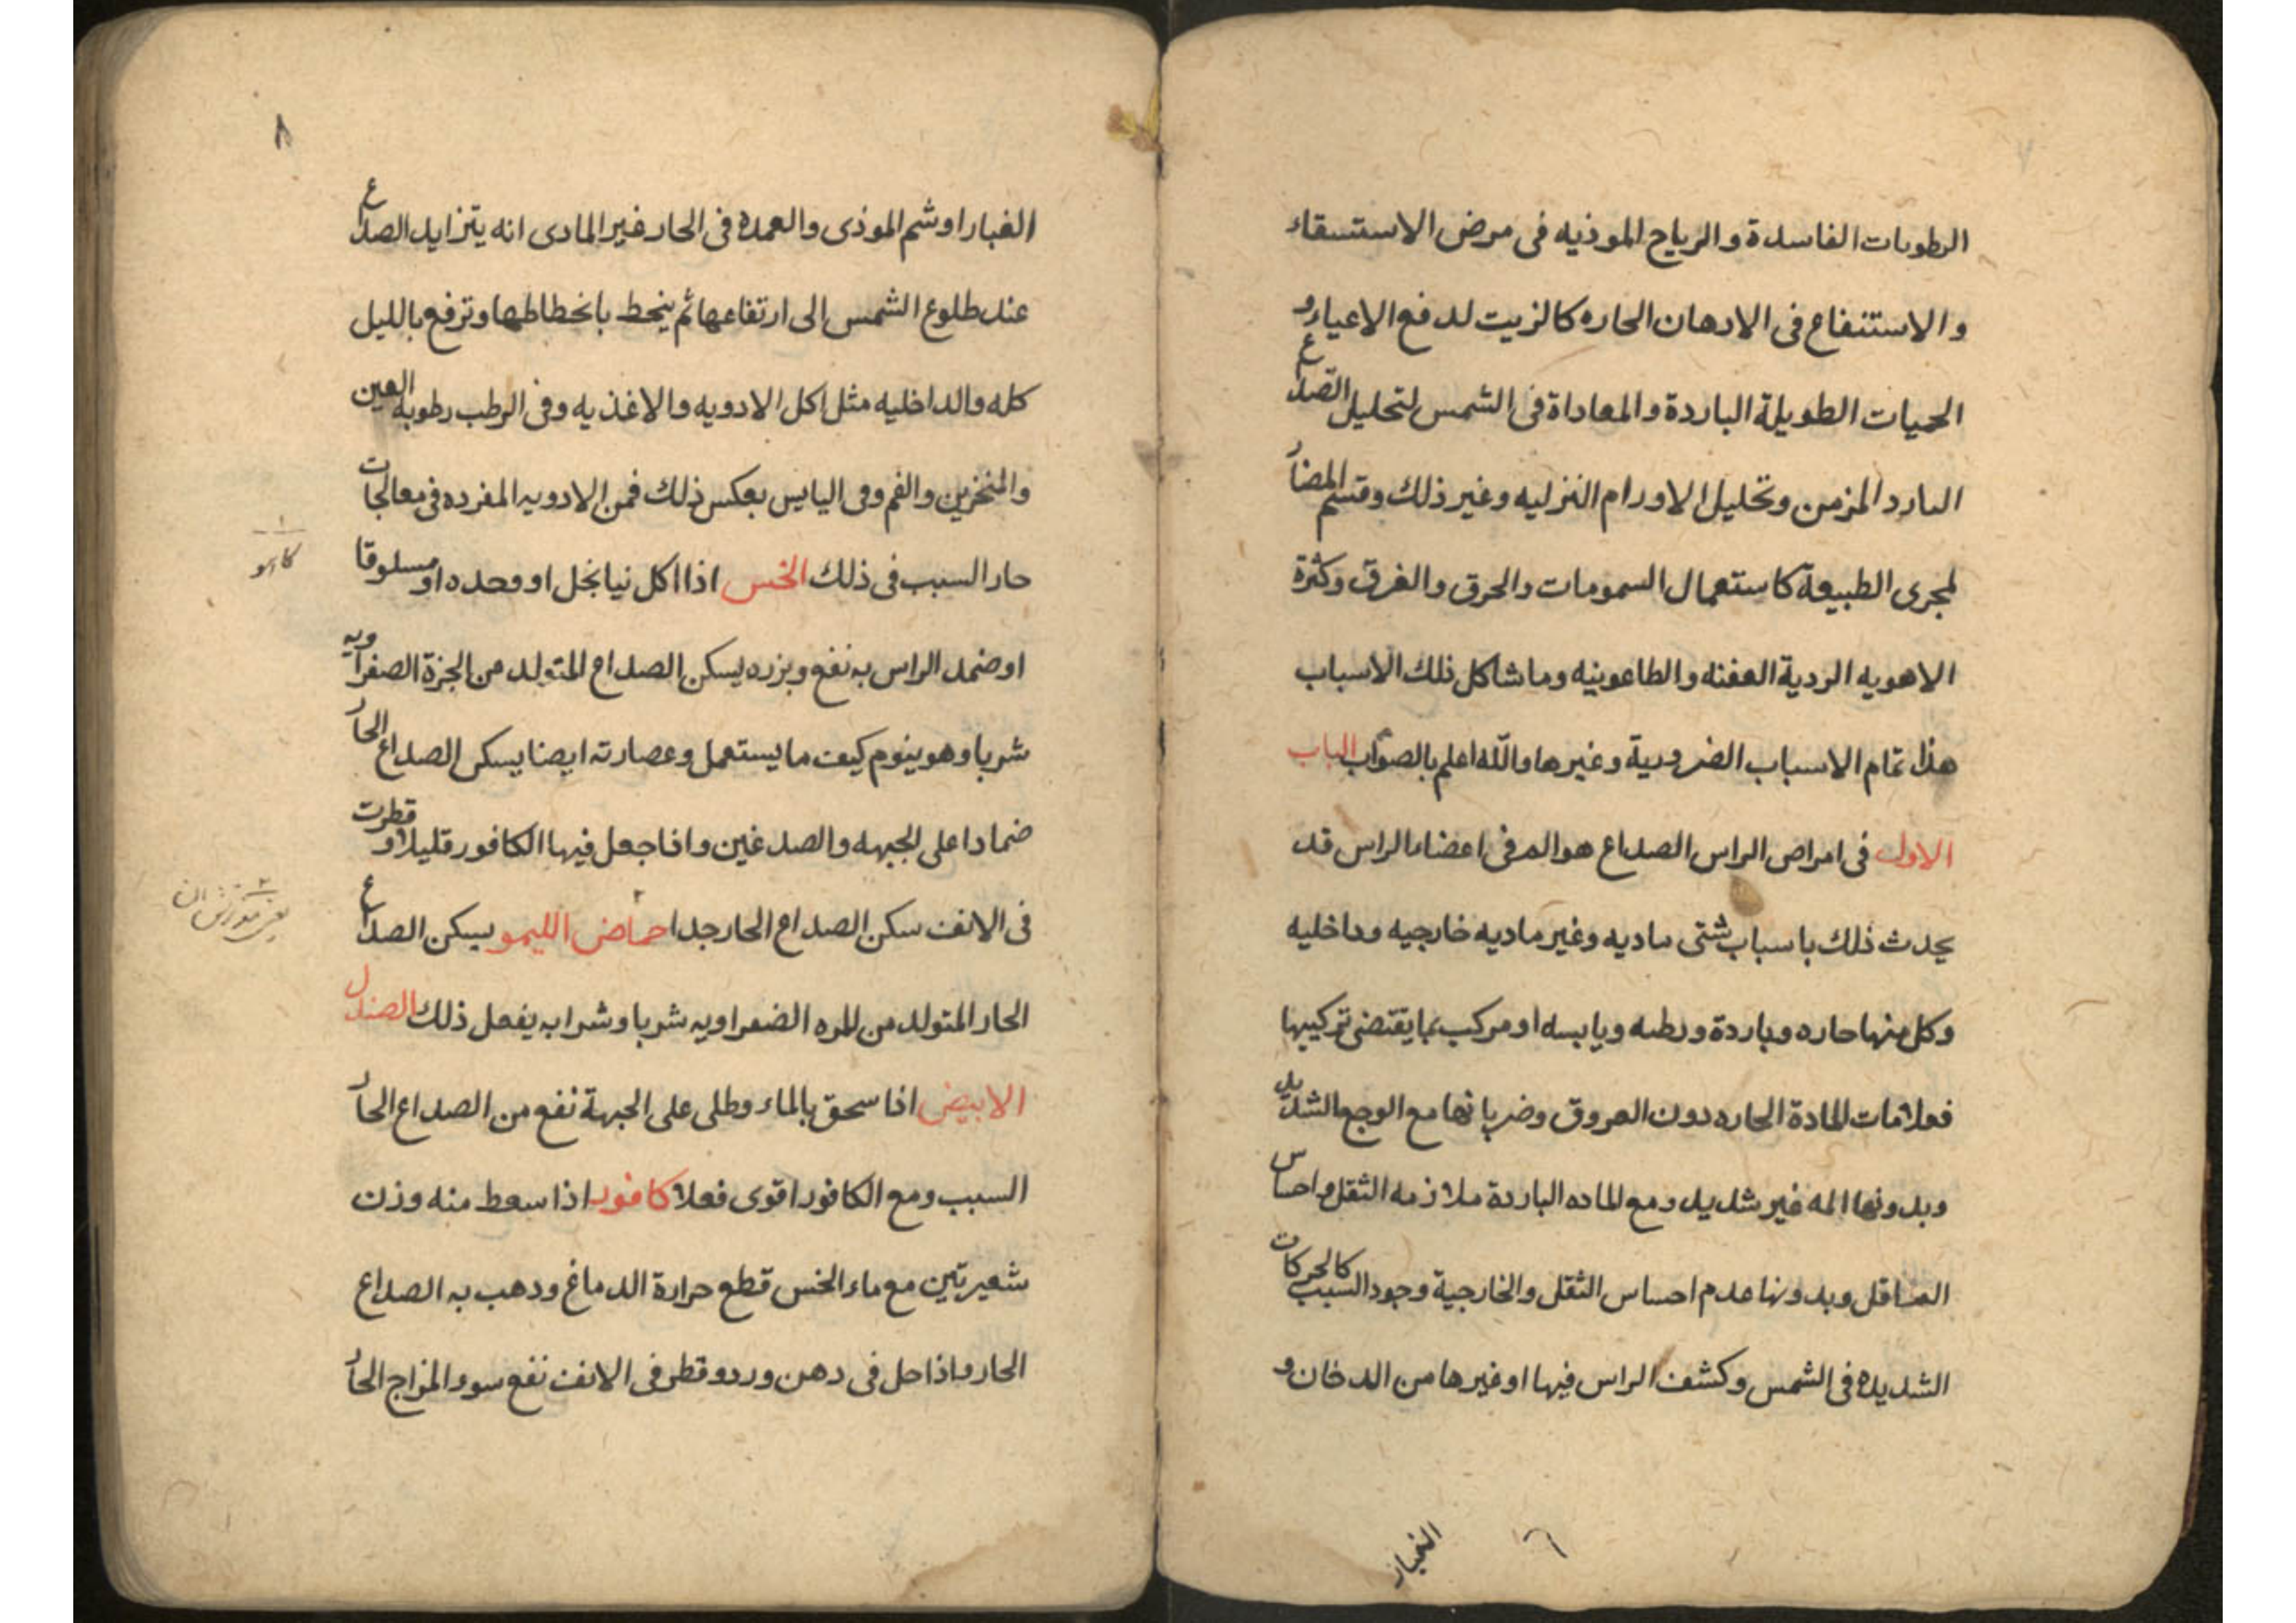 الرطوبات الفاسدة والرياح الموذيه فى مرض الاستسقاء
والاستنفاع فى الادهان الحاره كالزيت لدفع الاعياء و
الحميات الطويلة الباردة والمعاداة فى الشمس لتحليل الصداع
البارد المزمن وتحليل الاورام النزليه وغير ذلك وقسم المضار
لمجرى الطبيعة كاستعمال السمومات والحرق والغرق وكثرة
الاهويه الردية العفنه والطاعونيه وما شاكل ذلك الاسباب
هذا تمام الاسباب الضرورية وغيرها والله اعلم بالصواب الباب
الاول فى امراض الراس الصداع هو الم فى اعضاء الراس قد
يحدث ذلك باسباب شتى ماديه وغير ماديه خارجيه وداخليه
وكل منها حاره وباردة ورطبه ويابسه او مركب بما يقتضى تركيبها
فعلامات المادة الحاره دون العروق وضربانها مع الوجع الشديد
وبدونها المه غير شديد ومع الماده الباردة ملازمه الثقل واحساس
الثاقل وبدونها عدم احساس الثقل والخارجية وجود السبب كالحركات
الشديده فى الشمس وكشف الراس فيها او غيرها من الدخان و
الغبار
٦
٨
الغبار او شم الموذى والعمدة فى الحار غير المادى انه يتزايد الصداع
عند طلوع الشمس الى ارتفاعها ثم ينحط بانحطاطها وترفع بالليل
كله والداخليه مثل اكل الادويه والاغذيه وفى الرطب رطوبه العين
والمنخرين والفم وفى اليابس بعكس ذلك فمن الادويه المفرده فى معالجات
حار السبب فى ذلك الخس اذا اكل نيا بخل او وحده او مسلوقا
١
كاهو
او ضمد الراس به نفع وبزره يسكن الصداع المتولد من الجزة الصفراويه
شربا وهو ينوم كيف ما يستعمل وعصارته ايضا يسكن الصداع الحار
ضمادا على الجبهه والصدغين واذا جعل فيها الكافور قليلا وقطرت
فى الانف سكن الصداع الحار جدا حماض الليمو يسكن الصداع
٢
يعنى
الحار المتولد من المره الصفراويه شربا وشرابه يفعل ذلك الصندل
الابيض اذا سحق بالماء وطلى على الجبهة نفع من الصداع الحار
السبب ومع الكافور اقوى فعلا كافور اذا سعط منه وزن
شعيرتين مع ماء الخس قطع حرارة الدماغ ودهب به الصداع
الحار واذا حل فى دهن ورد وقطر فى الانف نفع سوء المزاج الحار